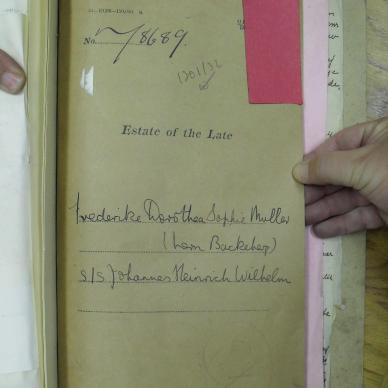 No. 78689.
1201/32
Estate of the Late
Frederike Dorothea Sophie Muller
(born Backeberg)
s/s Johannes Heinrich Wilhelm